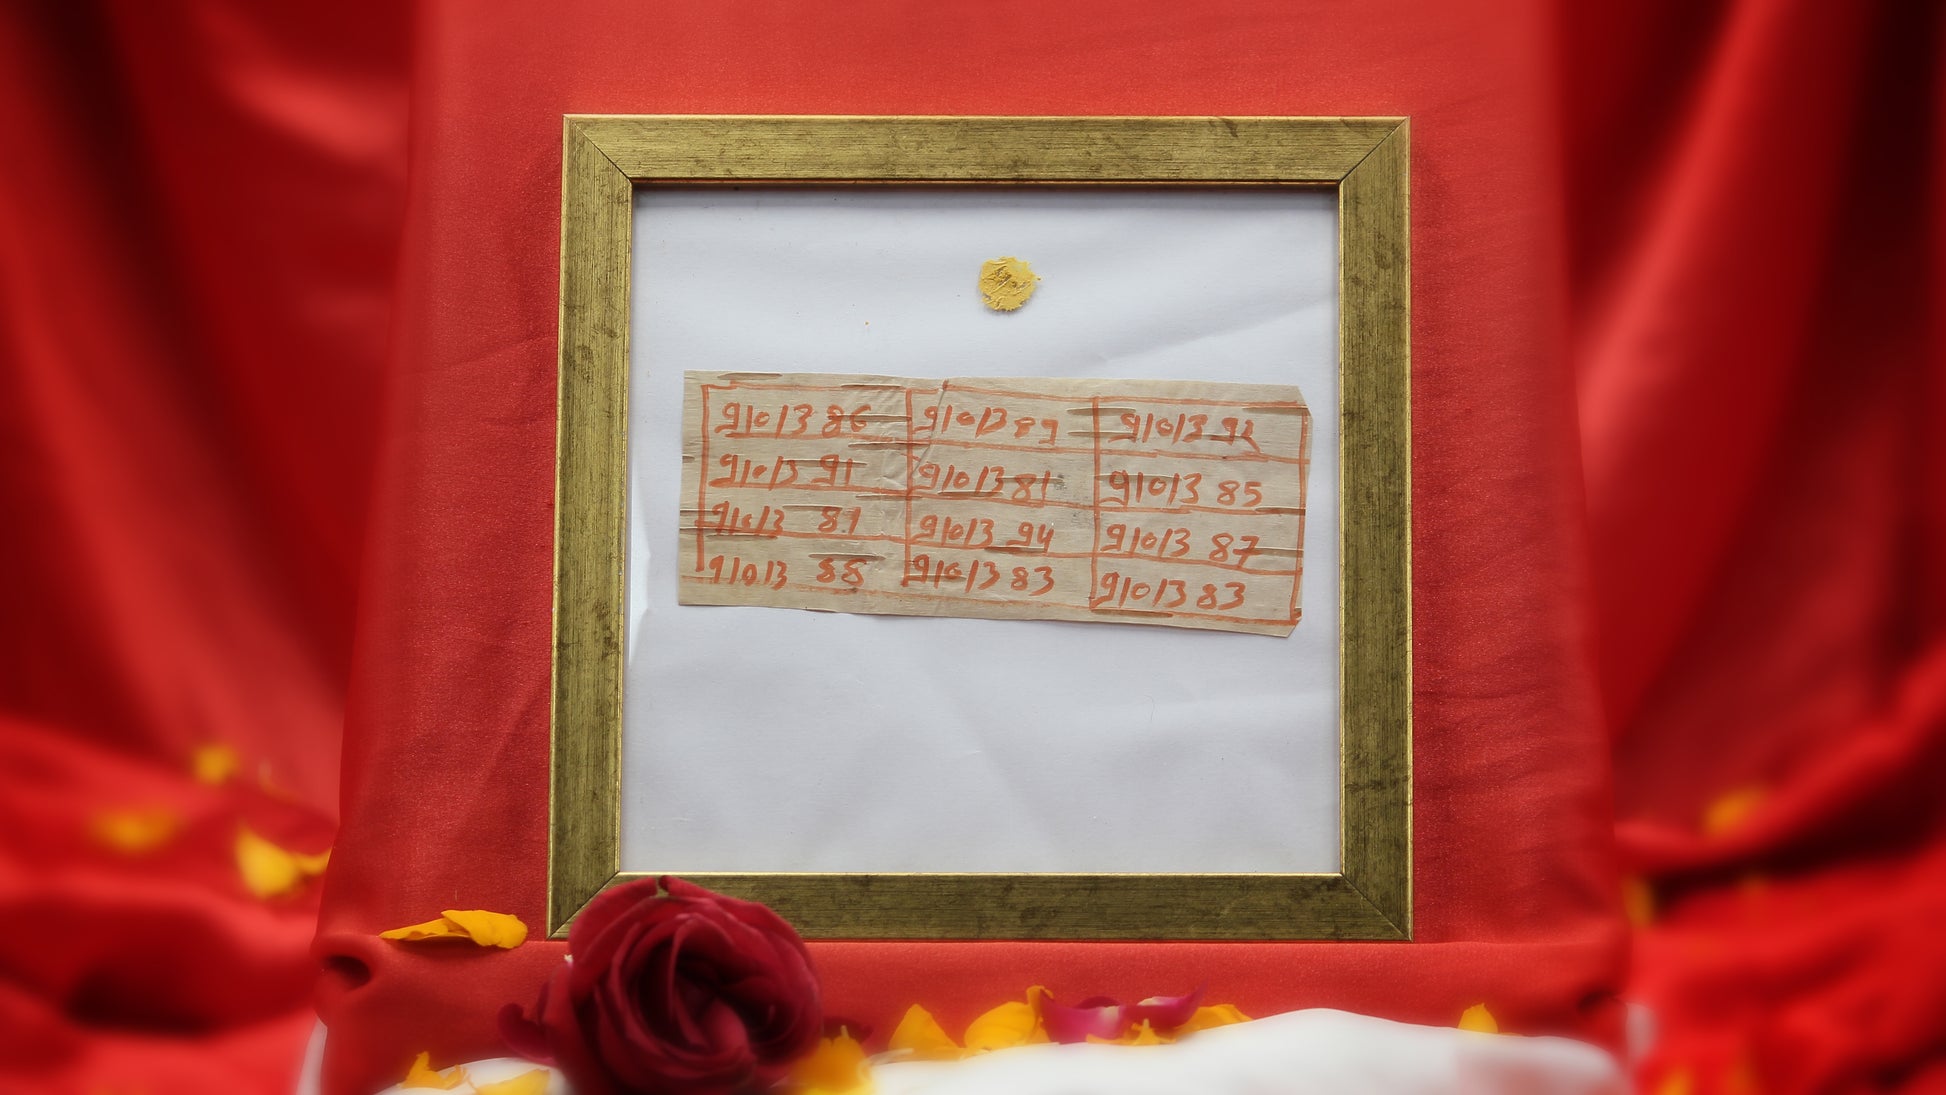 91013 86 91013 89 91013 92
91013 91 91013 81 91013 85
91013 81 91013 94 91013 87
91013 88 91013 83 91013 83